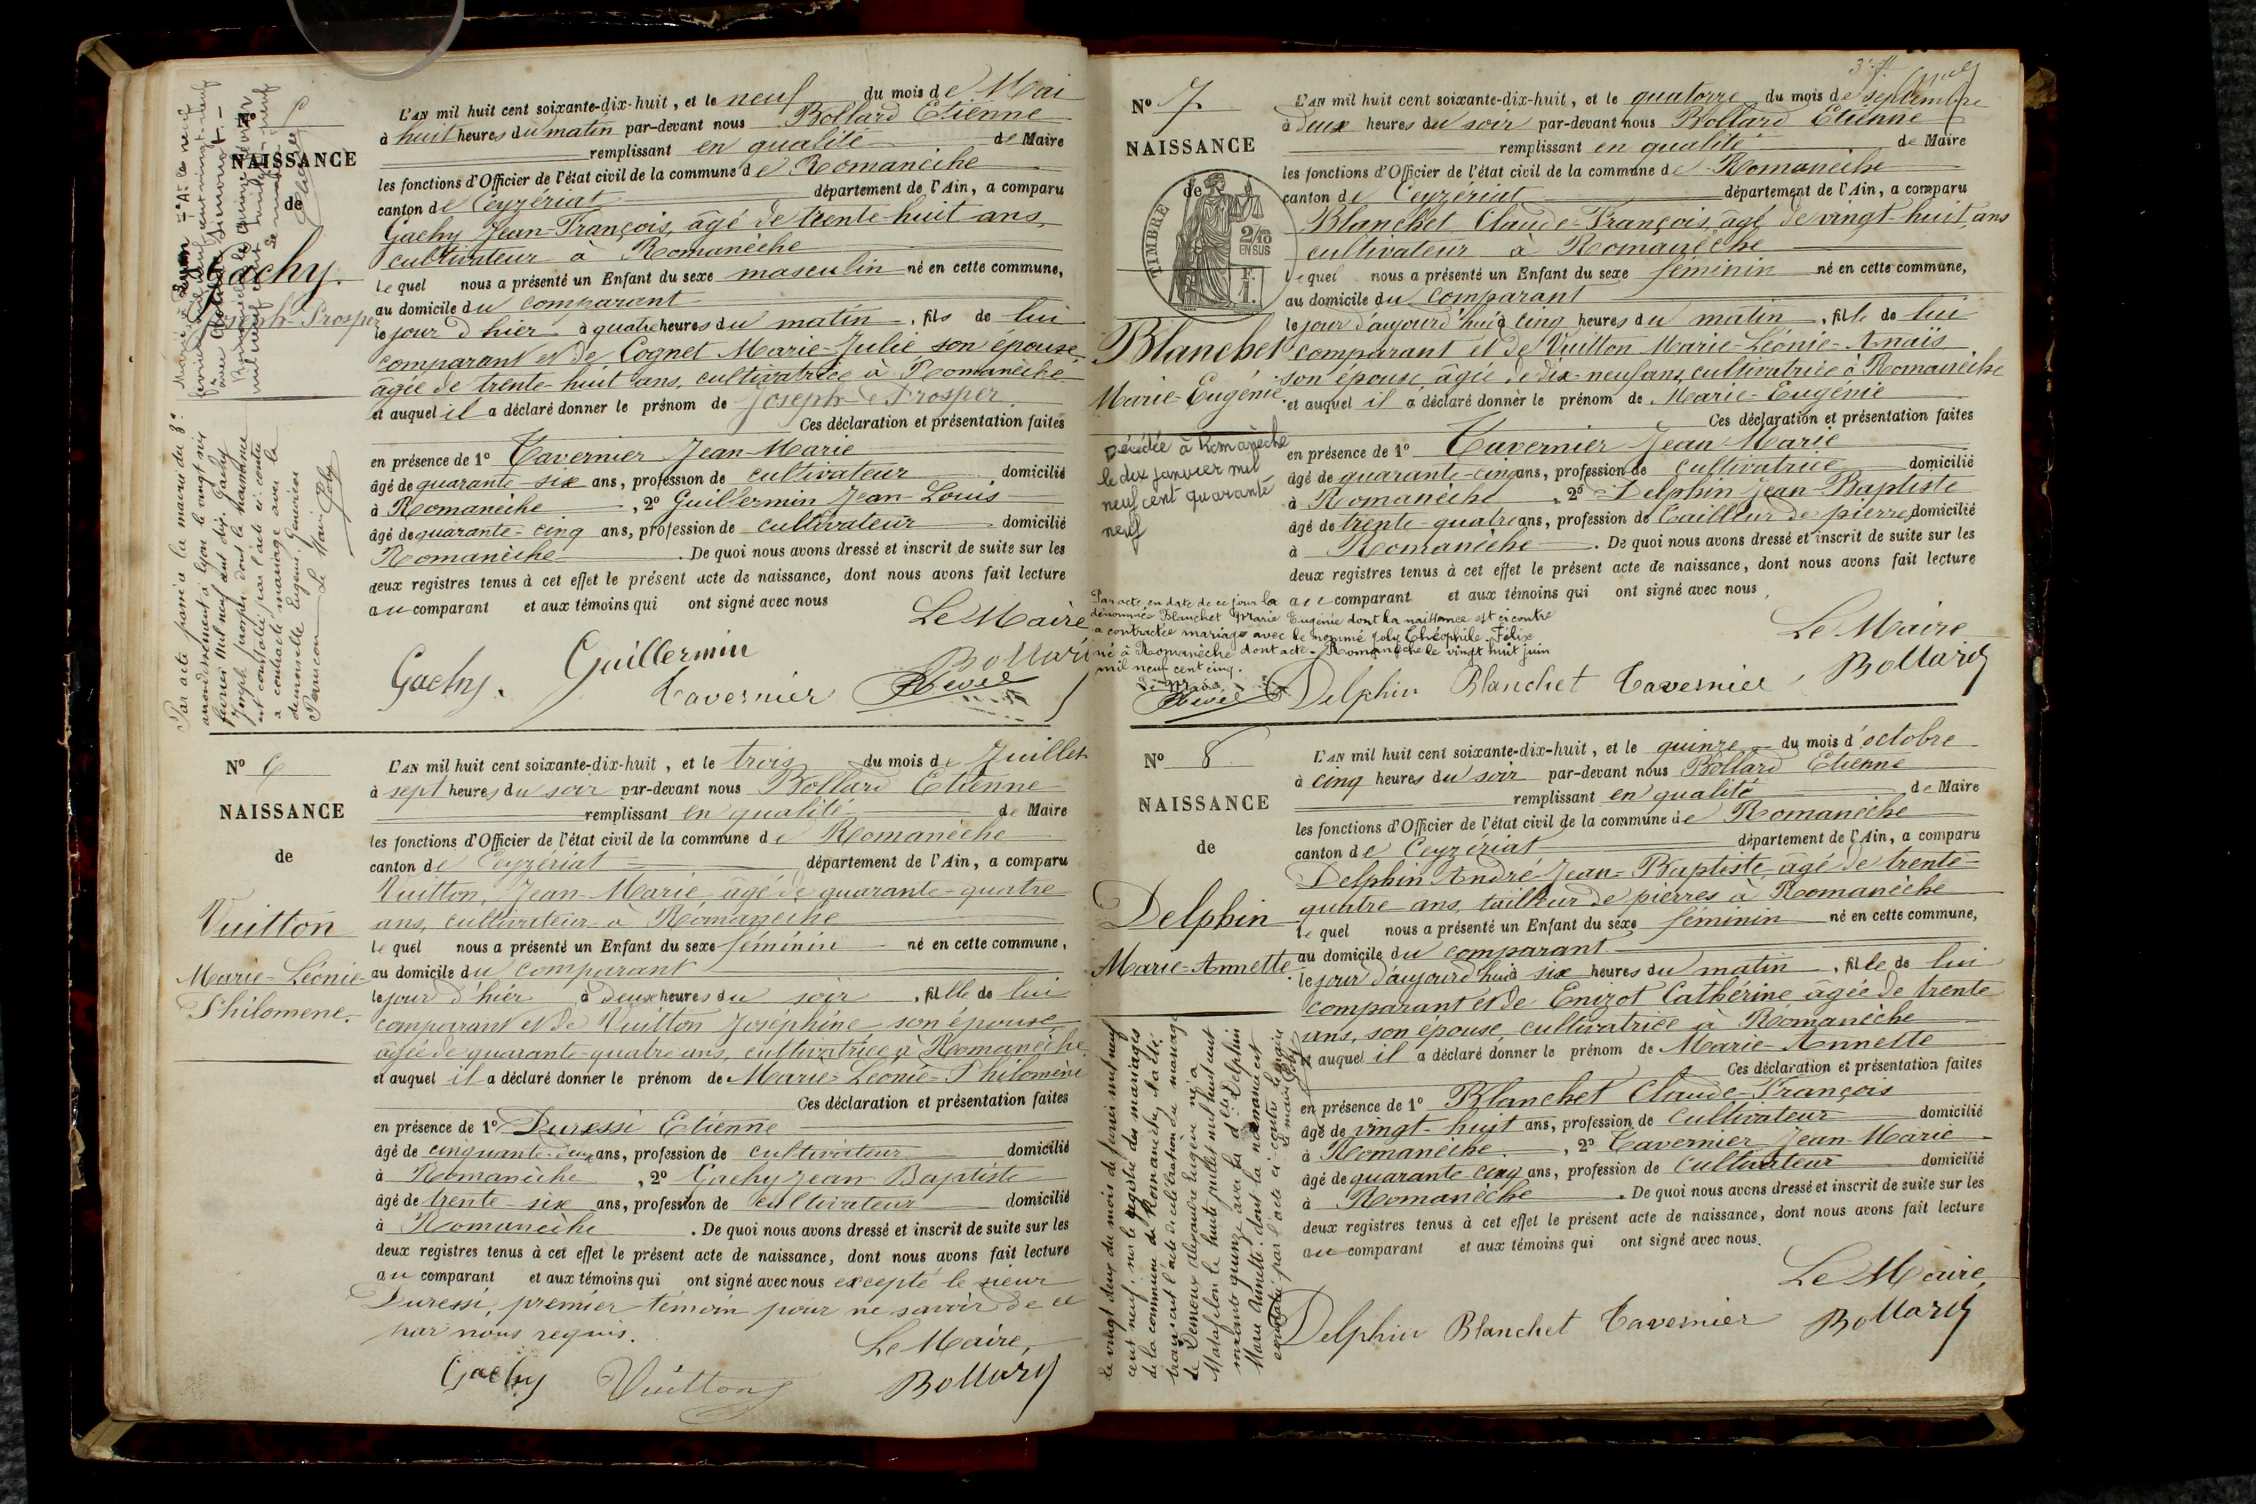 Nº 5
NAISSANCE
de
Gachy
Joseph-Prosper
L'AN mil huit cent soixante-dix-huit, et le neuf du mois de Mai
à huit heures du matin par-devant nous Bollard Etienne
remplissant en qualité de Maire
les fonctions d'Officier de l'état civil de la commune de Romanèche
canton de Ceyzériat département de l'Ain, a comparu
Gachy Jean-François, âgé de trente-huit ans,
cultivateur à Romanèche
lequel nous a présenté un Enfant du sexe masculin né en cette commune,
au domicile du comparant
le jour d'hier à quatre heures du matin, fils de lui
comparant et de Cognet Marie-Julie son épouse,
âgée de trente-huit ans, cultivatrice à Romanèche
et auquel il a déclaré donner le prénom de Joseph-Prosper.
Ces déclaration et présentation faites
en présence de 1º Tavernier Jean-Marie
âgé de quarante-six ans, profession de cultivateur domicilié
à Romanèche, 2º Guillermin Jean-Louis
âgé de quarante-cinq ans, profession de cultivateur domicilié
Romanèche. De quoi nous avons dressé et inscrit de suite sur les
deux registres tenus à cet effet le présent acte de naissance, dont nous avons fait lecture
au comparant et aux témoins qui ont signé avec nous
Le Maire
Gachy. Guillermin Tavernier Bollard
Par acte passé à la mairie du 3e
arrondissement à Lyon le vingt six
février mil neuf cent dix, Gachy
Joseph prosper dont la naissance
est constatée par l'acte ci-contre
a contracté mariage avec la
demoiselle Eugénie Genevièse
Le Maire
Nº 6
NAISSANCE
de
Vuitton
Marie-Léonie
Philomène.
L'AN mil huit cent soixante-dix-huit, et le trois du mois de Juillet
à sept heures du soir par-devant nous Bollard Etienne
remplissant en qualité de Maire
les fonctions d'Officier de l'état civil de la commune de Romanèche
canton de Ceyzériat département de l'Ain, a comparu
Vuitton, Jean-Marie, âgé de quarante-quatre
ans, cultivateur à Romanèche
lequel nous a présenté un Enfant du sexe féminin né en cette commune,
au domicile du comparant
le jour d'hier à deux heures du soir, fille de lui
comparant et de Vuitton Joséphine son épouse
âgée de quarante-quatre ans, cultivatrice à Romanèche.
et auquel il a déclaré donner le prénom de Marie-Léonie-Philomène
Ces déclaration et présentation faites
en présence de 1º Duressi Etienne
âgé de cinquante-deux ans, profession de cultivateur domicilié
à Romanèche, 2º Gachy Jean Baptiste
âgé de trente-six ans, profession de cultivateur domicilié
à Romanèche. De quoi nous avons dressé et inscrit de suite sur les
deux registres tenus à cet effet le présent acte de naissance, dont nous avons fait lecture
au comparant et aux témoins qui ont signé avec nous excepté le sieur
Duressi, premier témoin pour ne savoir de ce
par nous requis.
Le Maire,
Gachy Vuitton Bollard
Nº 7
NAISSANCE
de
TIMBRE
2/10
EN SUS
Blanchet
Marie-Eugénie.
Décédée à Romanèche
le dix janvier mil
neuf cent quarante
neuf
L'AN mil huit cent soixante-dix-huit, et le quatorze du mois de septembre
à deux heures du soir par-devant nous Bollard Etienne
remplissant en qualité de Maire
les fonctions d'Officier de l'état civil de la commune de Romanèche
canton de Ceyzériat département de l'Ain, a comparu
Blanchet Claude-François, âgé de vingt-huit ans
cultivateur à Romanèche
lequel nous a présenté un Enfant du sexe féminin né en cette commune,
au domicile du comparant
le jour d'aujourd'hui à cinq heures du matin, fille de lui
comparant et de Vuitton Marie-Léonie-Anaïs
son épouse âgée de dix-neuf ans, cultivatrice à Romanèche
et auquel il a déclaré donner le prénom de Marie-Eugénie
Ces déclaration et présentation faites
en présence de 1º Tavernier Jean Marie
âgé de quarante-cinq ans, profession de cultivatrice domicilié
à Romanèche, 2º Delphin Jean-Baptiste
âgé de trente-quatre ans, profession de tailleur de pierres domicilié
à Romanèche. De quoi nous avons dressé et inscrit de suite sur les
deux registres tenus à cet effet le présent acte de naissance, dont nous avons fait lecture
au comparant et aux témoins qui ont signé avec nous,
Par acte en date de ce jour la
dénommée Blanchet Marie Eugénie dont la naissance est ci contre
a contractée mariage avec le nommé Joly Théophile-Félix
né à Romanèche dont acte. Romanèche le vingt huit juin
mil neuf cent cinq.
Le Maire
Le Maire
Delphin Blanchet Tavernier, Bollard
Nº 8
NAISSANCE
de
Delphin
Marie-Annette.
L'AN mil huit cent soixante-dix-huit, et le quinze du mois d'octobre
à cinq heures du soir par-devant nous Bollard Etienne
remplissant en qualité de Maire
les fonctions d'Officier de l'état civil de la commune de Romanèche
canton de Ceyzériat département de l'Ain, a comparu
Delphin André Jean-Baptiste, âgé de trente-
quatre ans, tailleur de pierres à Romanèche
lequel nous a présenté un Enfant du sexe féminin né en cette commune,
au domicile du comparant
le jour d'aujourd'hui à six heures du matin, fille de lui
comparant et de Enizot Cathérine, âgée de trente
ans, son épouse, cultivatrice à Romanèche
et auquel il a déclaré donner le prénom de Marie-Annette
Ces déclaration et présentation faites
en présence de 1º Blanchet Claude-François
âgé de vingt-huit ans, profession de cultivateur domicilié
à Romanèche, 2º Tavernier Jean-Marie
âgé de quarante cinq ans, profession de cultivateur domicilié
à Romanèche. De quoi nous avons dressé et inscrit de suite sur les
deux registres tenus à cet effet le présent acte de naissance, dont nous avons fait lecture
au comparant et aux témoins qui ont signé avec nous.
Le Maire,
Delphin Blanchet Tavernier Bollard
Le vingt deux du mois de février mil neuf
cent neuf, sur le registre des mariages
de la commune de Romanèche, a été
transcrit l'acte de célébration du mariage
de Alexandre Eugène né à
Matafelon le huit juillet mil huit cent
soixante quinze avec la d. lle Delphin
Marie Annette dont la naissance est
constatée par l'acte ci-contre